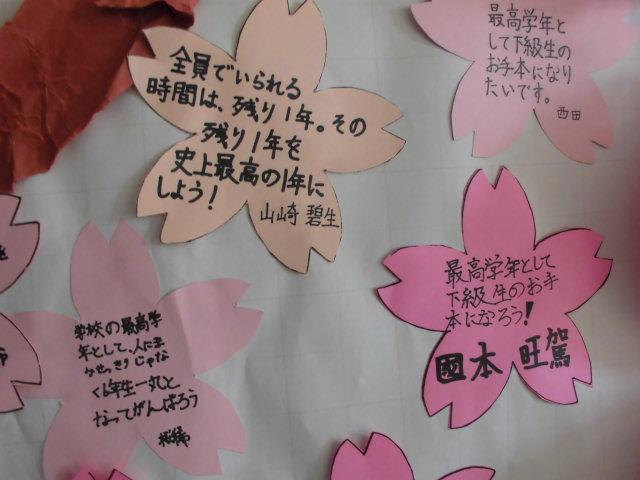 全員でいられる
時間は、残り1年。その
残り1年を
史上最高の1年に
しよう!
山崎 碧生
最高学年と
して下級生の
お手本になり
たいです。
西田
最高学年として
下級生のお手
本になろう!
國本 旺篤
学校の最高学
年として、人にま
かせっきりじゃな
く6年生一丸と
なってがんばろう